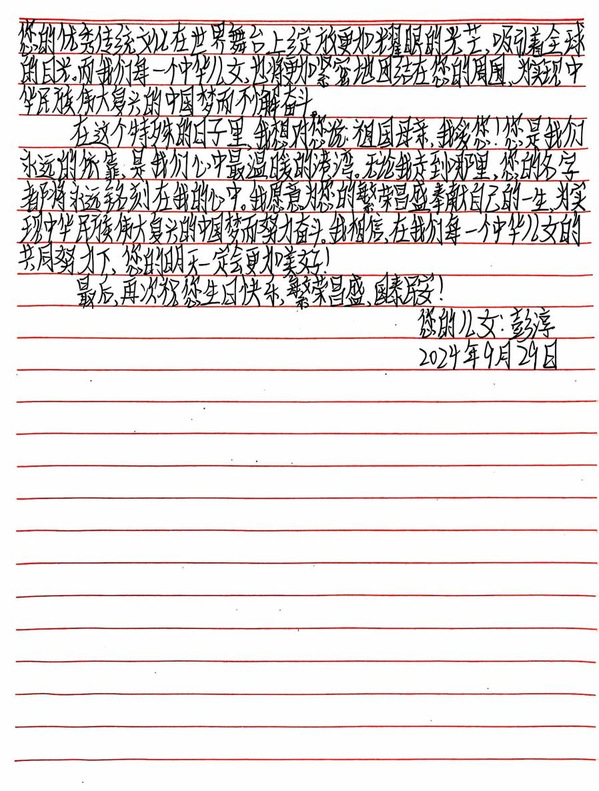 您的优秀传统文化在世界舞台上绽放更加耀眼的光芒,吸引着全球
的目光。而我们每一个中华儿女,也将更加紧密地团结在您的周围,为实现中
华民族伟大复兴的中国梦而不懈奋斗
在这个特殊的日子里,我想对您说:祖国母亲,我爱您!您是我们
永远的依靠,是我们心中最温暖的港湾。无论我走到哪里,您的名字
都将永远铭刻在我的心中。我愿意为您的繁荣昌盛奉献自己的一生,为实
现中华民族伟大复兴的中国梦而努力奋斗。我相信,在我们每一个中华儿女的
共同努力下,您的明天一定会更加美好!
最后,再次祝您生日快乐,繁荣昌盛,国泰民安!
您的儿女:彭淳
2024年9月29日